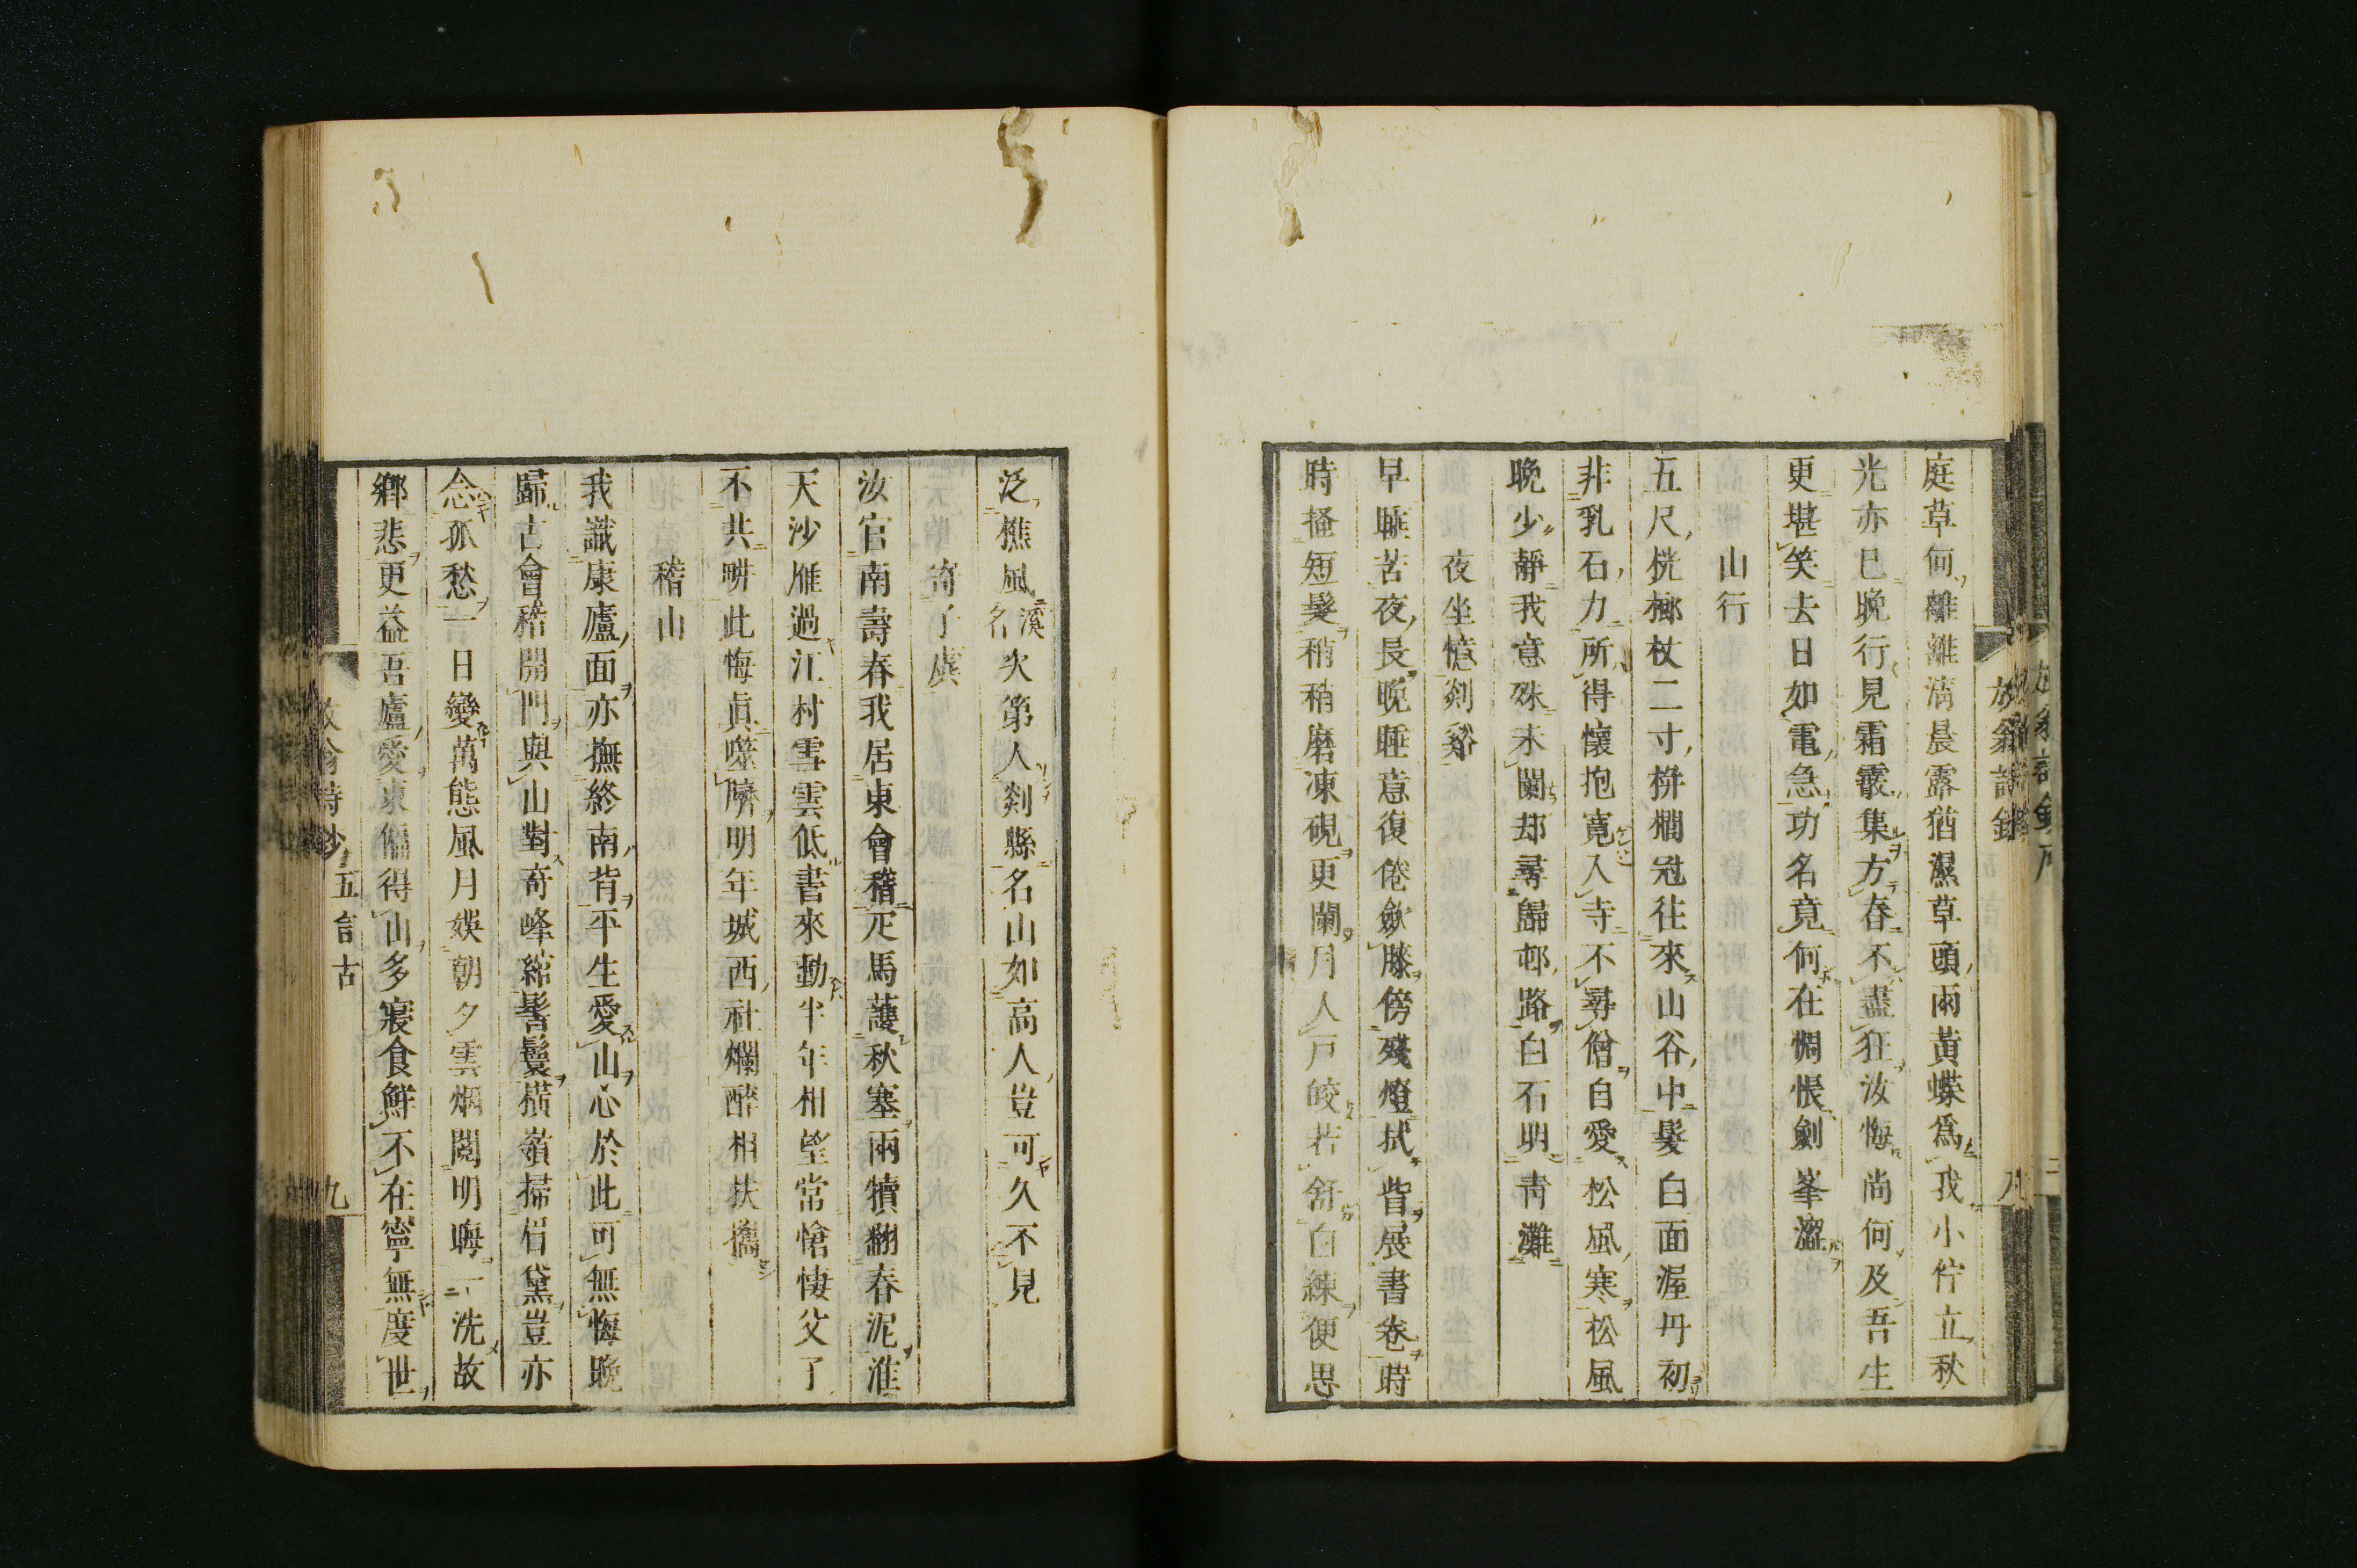 庭草何離離淸晨露猶濕草頭兩黃蝶爲我小佇立秋
光亦已晩行見霜霰集方春不盡狂汝悔尚何及吾生
更堪笑去日如電急功名竟何在惆悵劍峯澀
山行
五尺桄榔杖二寸栟櫚冠往來山谷中髮白面渥丹初
非乳石力所得懷抱寛入寺不尋僧自愛松風寒松風
晩少靜我意殊未闌却尋歸邨路白石明靑灘
夜坐憶剡谿
早睡苦夜長晩睡意復倦斂膝傍殘燈拭眥展書卷時
時搔短髮稍稍磨凍硯更闌月入戸皎若舒白練便思
泛樵風溪名次第入剡縣名山如高人豈可久不見
寄子虡
汝官南壽春我居東會稽疋馬蘘秋塞兩犢翻春泥淮
天沙雁過江村雪雲低書來動半年相望常愴悽父子
不共畊此悔眞噬臍明年城西社爛醉相扶攜
稽山
我識康廬面亦撫終南背平生愛山心於此可無悔晩
歸古會稽開門與山對奇峰綰髻鬟橫嶺掃眉黛豈亦
念孤愁一日變萬態風月娛朝夕雲烟閱明晦一洗故
鄕悲更益吾廬愛東偏得山多寢食鮮不在寧無度世
放翁詩鈔 五言古 九